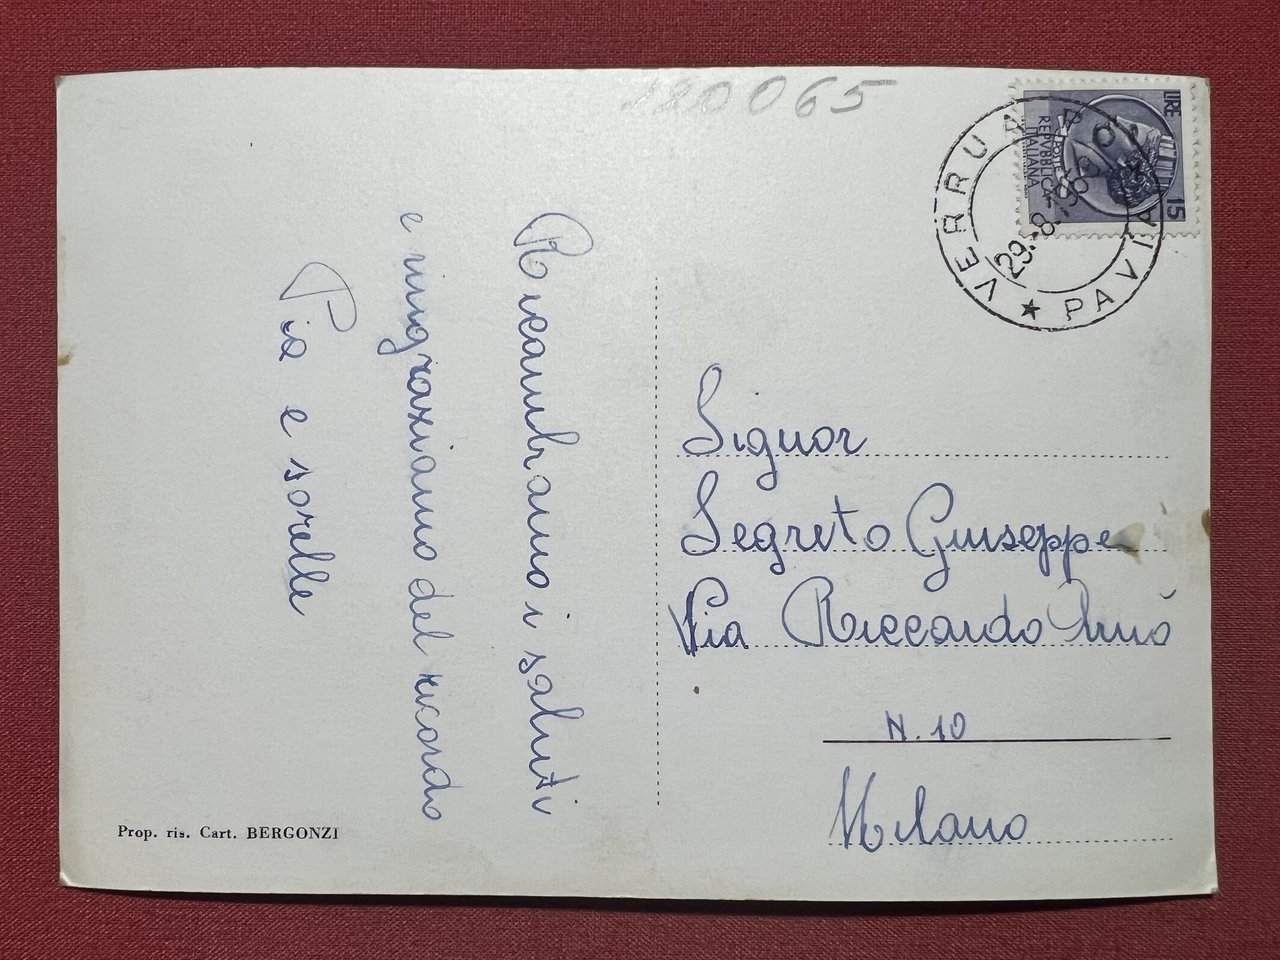 120065
LIRE
15
REPVBBLICA
ITALIANA
VERRUA PO
PAVIA
29.-8.
Ricambiamo i saluti
e ringraziamo del ricordo
Pia e sorelle
Signor
Segreto Giuseppe
Via Riccardo
N. 10
Milano
Prop. ris. Cart. BERGONZI